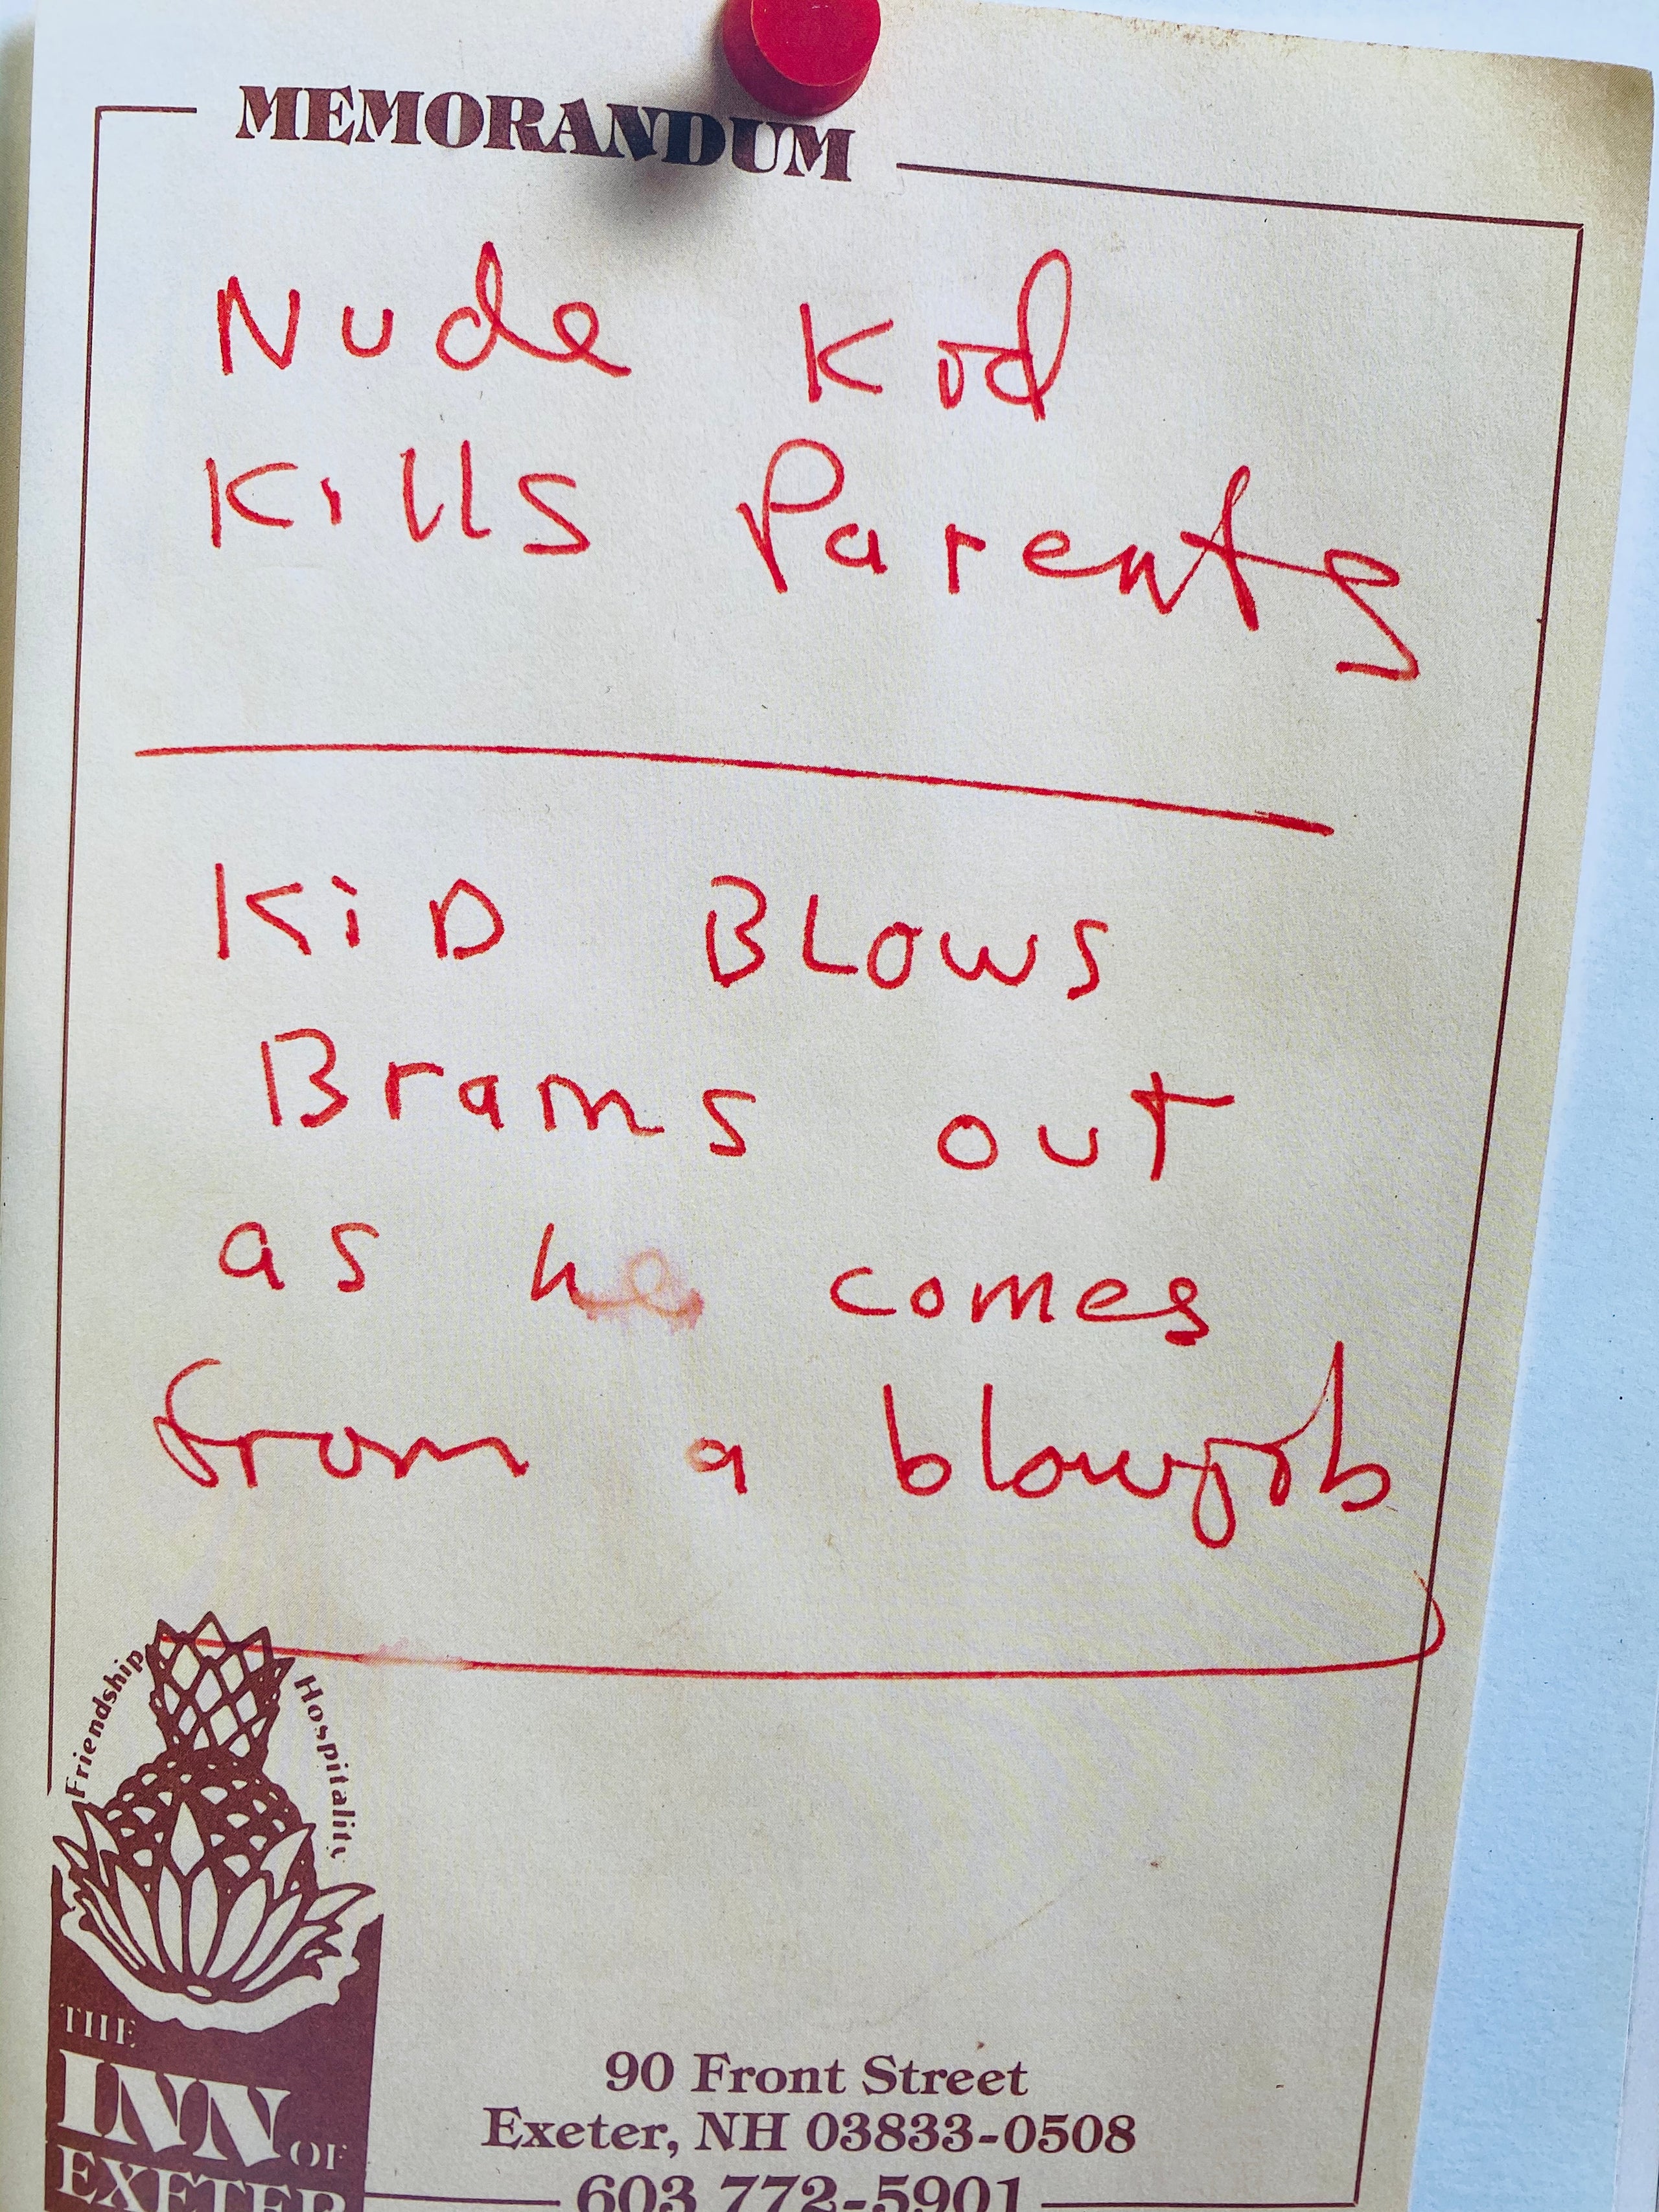 MEMORANDUM
Nude Kid
Kills Parents
KiD BLOWS
Brains out
as he comes
from a blowjob
Friendship Hospitality
THE
INN OF
EXETER
90 Front Street
Exeter, NH 03833-0508
603 772-5901